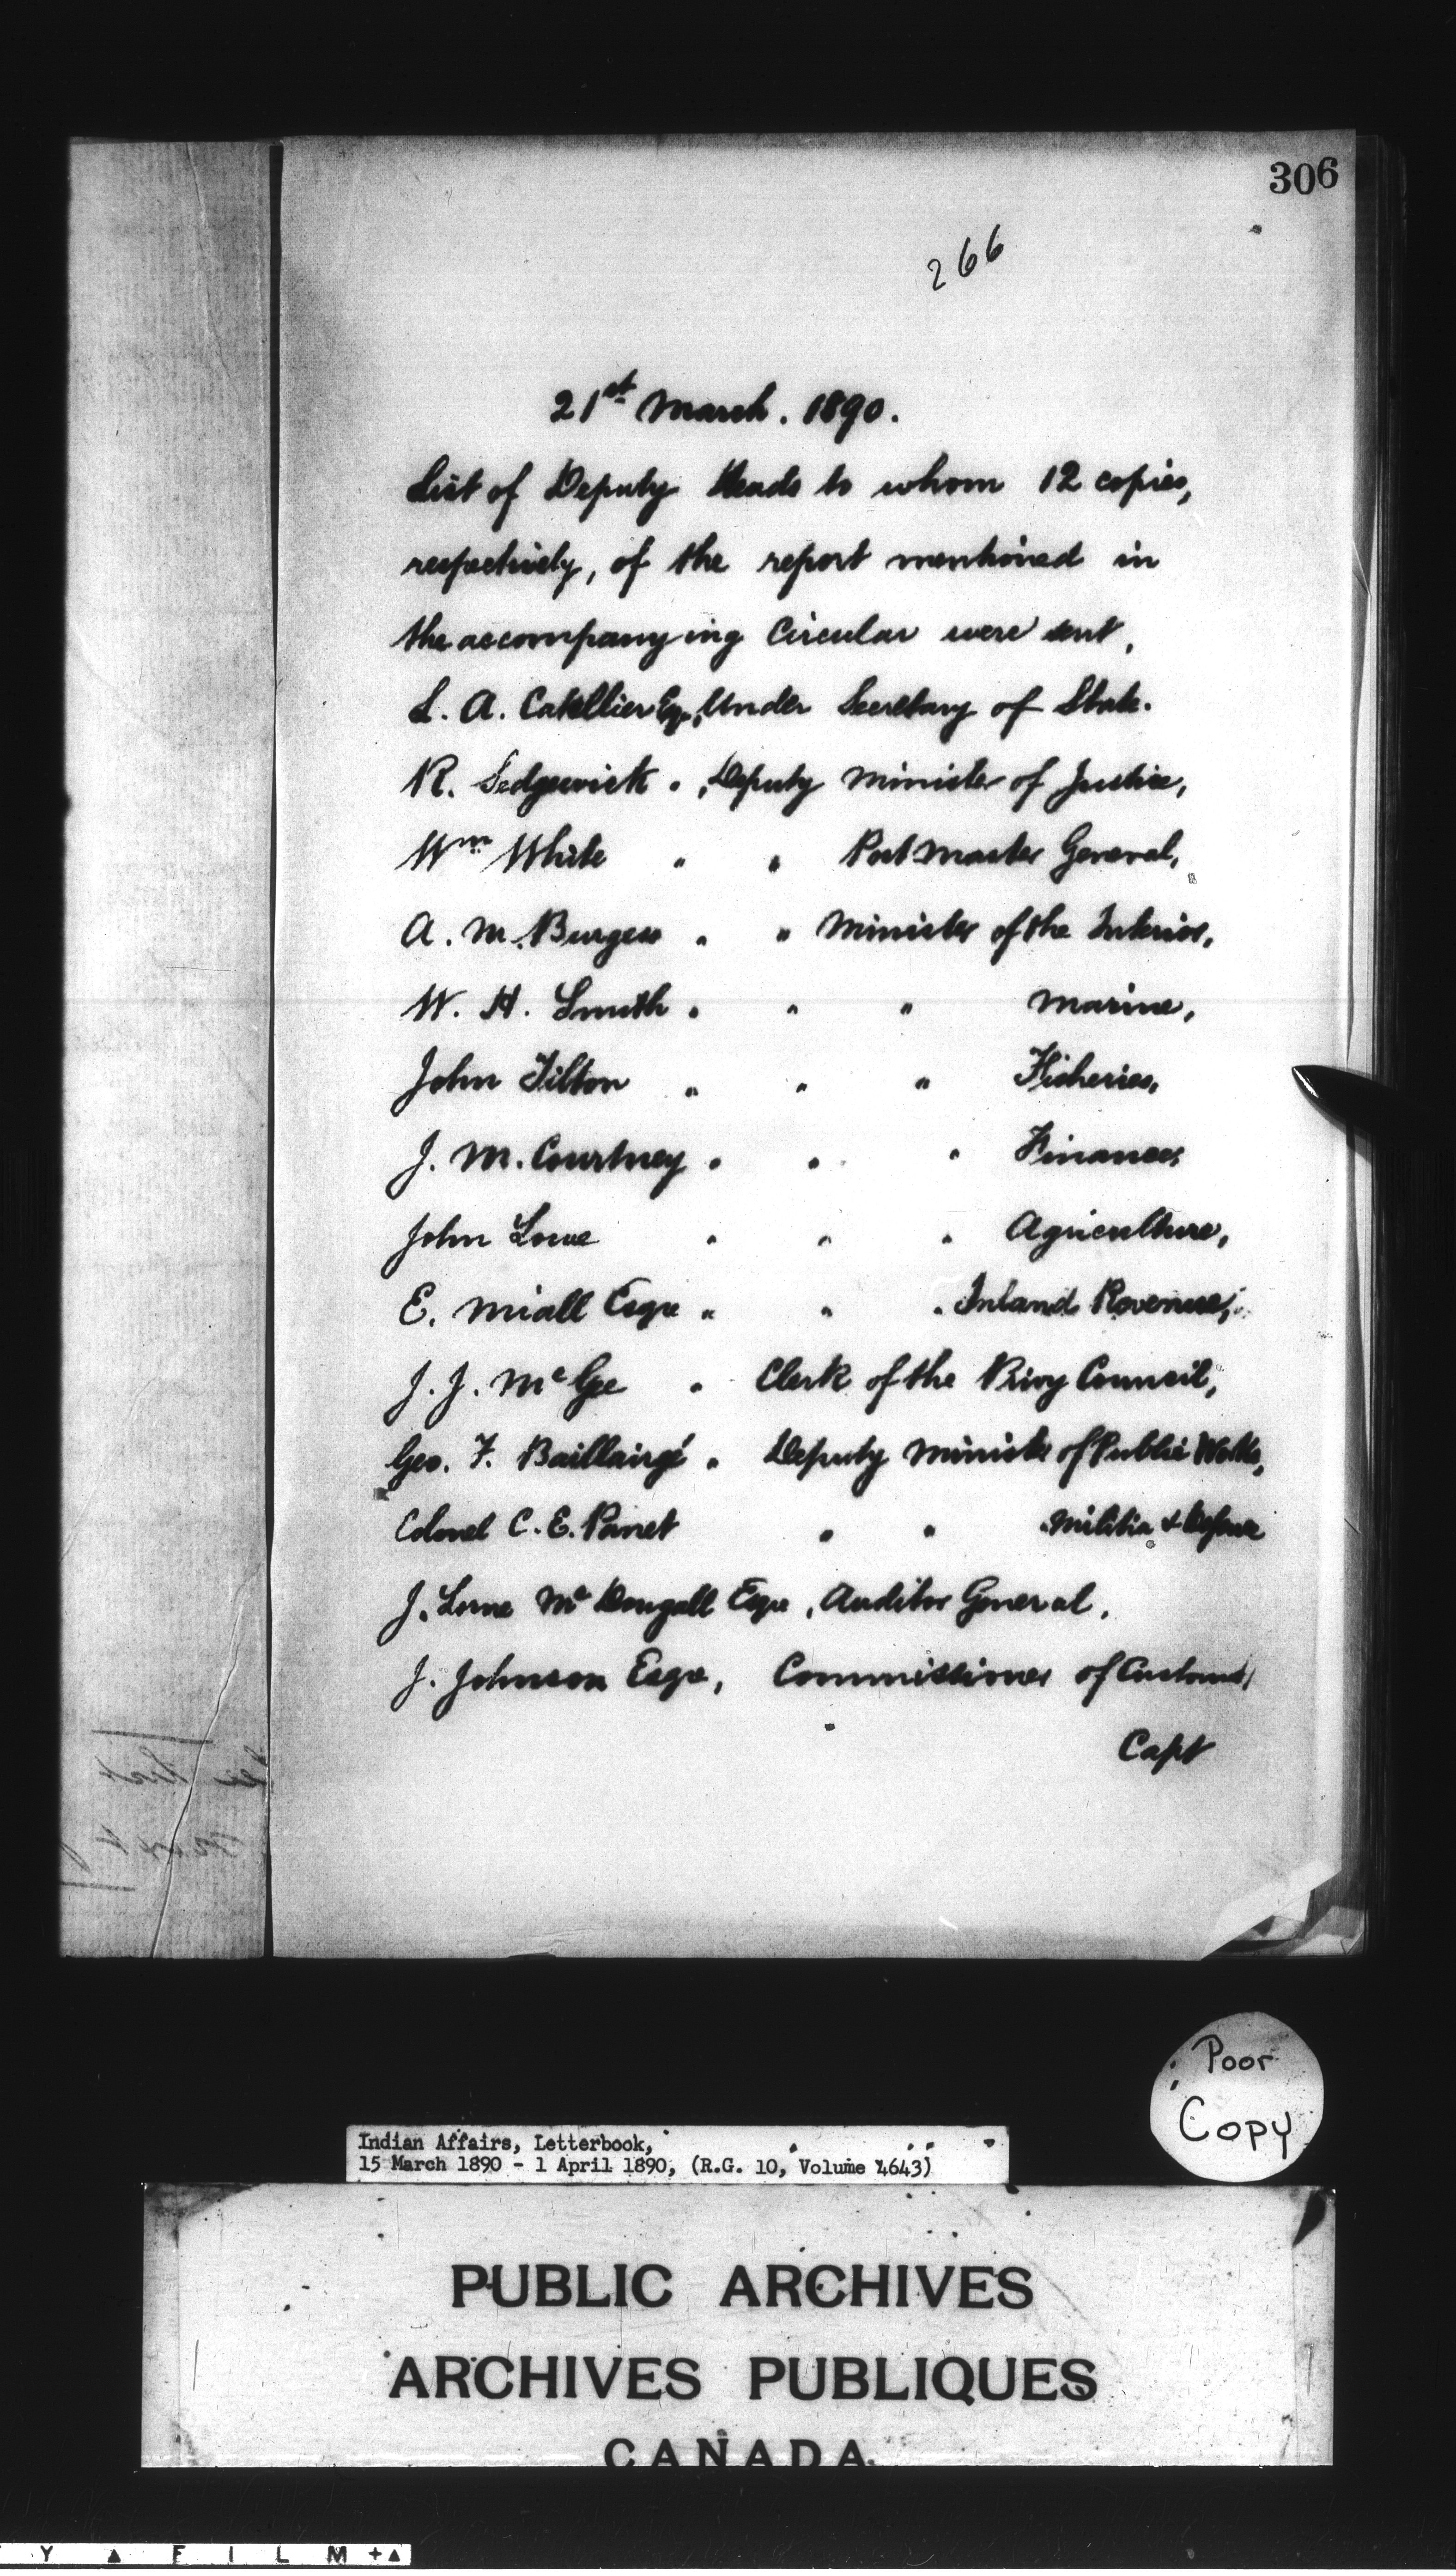 306
266
21st March. 1890.
List of Deputy Heads to whom 12 copies,
respectively, of the report mentioned in
the accompanying Circular were sent,
L. A. Catellier Esq, Under Secretary of State.
R. Sedgewick " , Deputy Minister of Justice,
Wm White " " Post Master General,
A. M. Burgess " " Minister of the Interior,
W. H. Smith " " " Marine,
John Tilton " " " Fisheries,
J. M. Courtney " " " Finance,
John Lowe " " " Agriculture,
E. Miall Esqre " " " Inland Revenue,
J. J. McGee " Clerk of the Privy Council,
Geo. F. Baillairgé " Deputy Minister of Public Works,
Colonel C. E. Panet " " Militia & Defence
J. Lorne McDougall Esqre, Auditor General,
J. Johnson Esqre, Commissioner of Customs,
Capt
Poor
Copy
Indian Affairs, Letterbook,
15 March 1890 - 1 April 1890, (R.G. 10, Volume 4643)
PUBLIC ARCHIVES
ARCHIVES PUBLIQUES
CANADA
Y ▲ F I L M + ▲